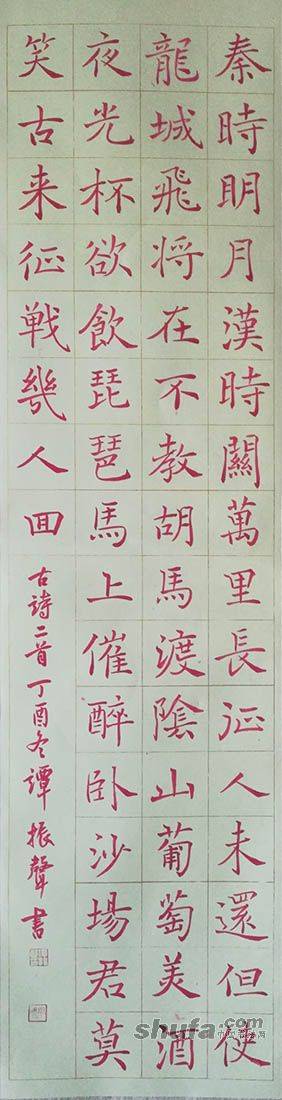 秦時明月漢時關萬里長征人未還但使
龍城飛将在不教胡馬渡陰山葡萄美酒
夜光杯欲飲琵琶馬上催醉卧沙場君莫
笑古来征戦幾人回
古詩二首丁酉冬譚振聲書
shufa.com